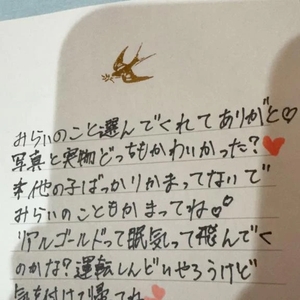 みらいのこと選んでくれてありがと♡
写真と実物どっちもかわいかった?♥
また他の子ばっかりかまってないで
みらいのこともかまってね♡
リアルゴールドって眠気って飛んでく
のかな?運転しんどいやろうけど
気を付けて帰ってね♥